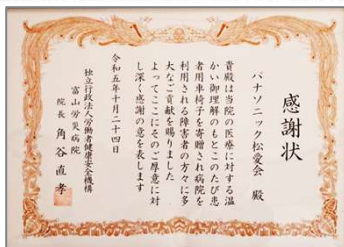 感謝状
パナソニック松愛会 殿
貴殿は当院の医療に対する温
かい御理解のもとこのたび患
者用車椅子を寄贈され病院を
利用される障害者の方々に多
大なご貢献を賜りました
よってここにそのご厚意に対
し深く感謝の意を表します
令和五年十月二十四日
独立行政法人労働者健康安全機構
富山労災病院
院長 角谷直孝